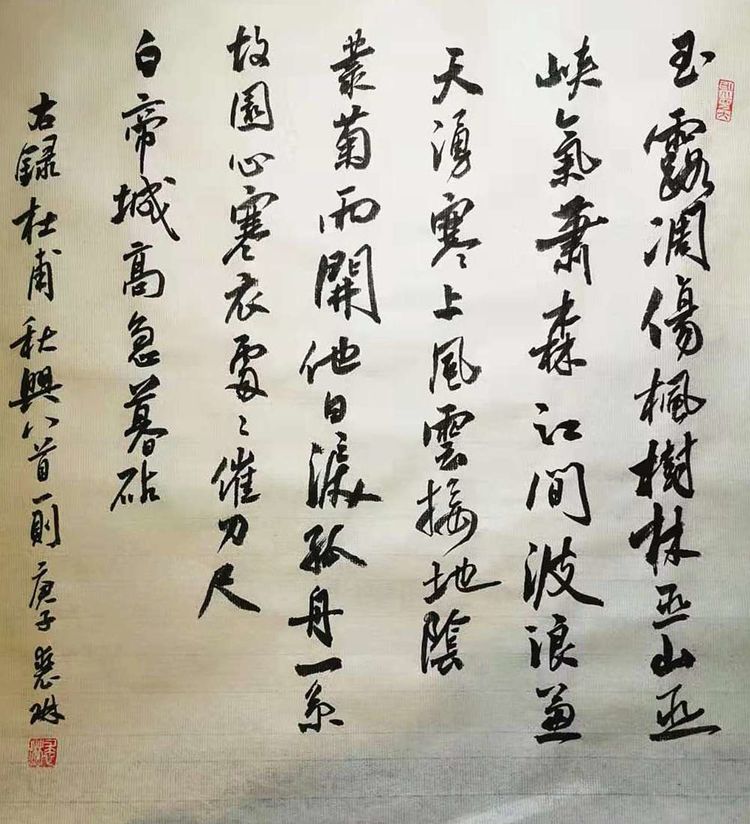 玉露凋傷楓樹林巫山巫
峽氣蕭森江間波浪兼
天湧寒上風雲接地陰
叢菊兩開他日淚孤舟一系
故園心寒衣處々催刀尺
白帝城高急暮砧
右録杜甫秋興八首一則庚子琳